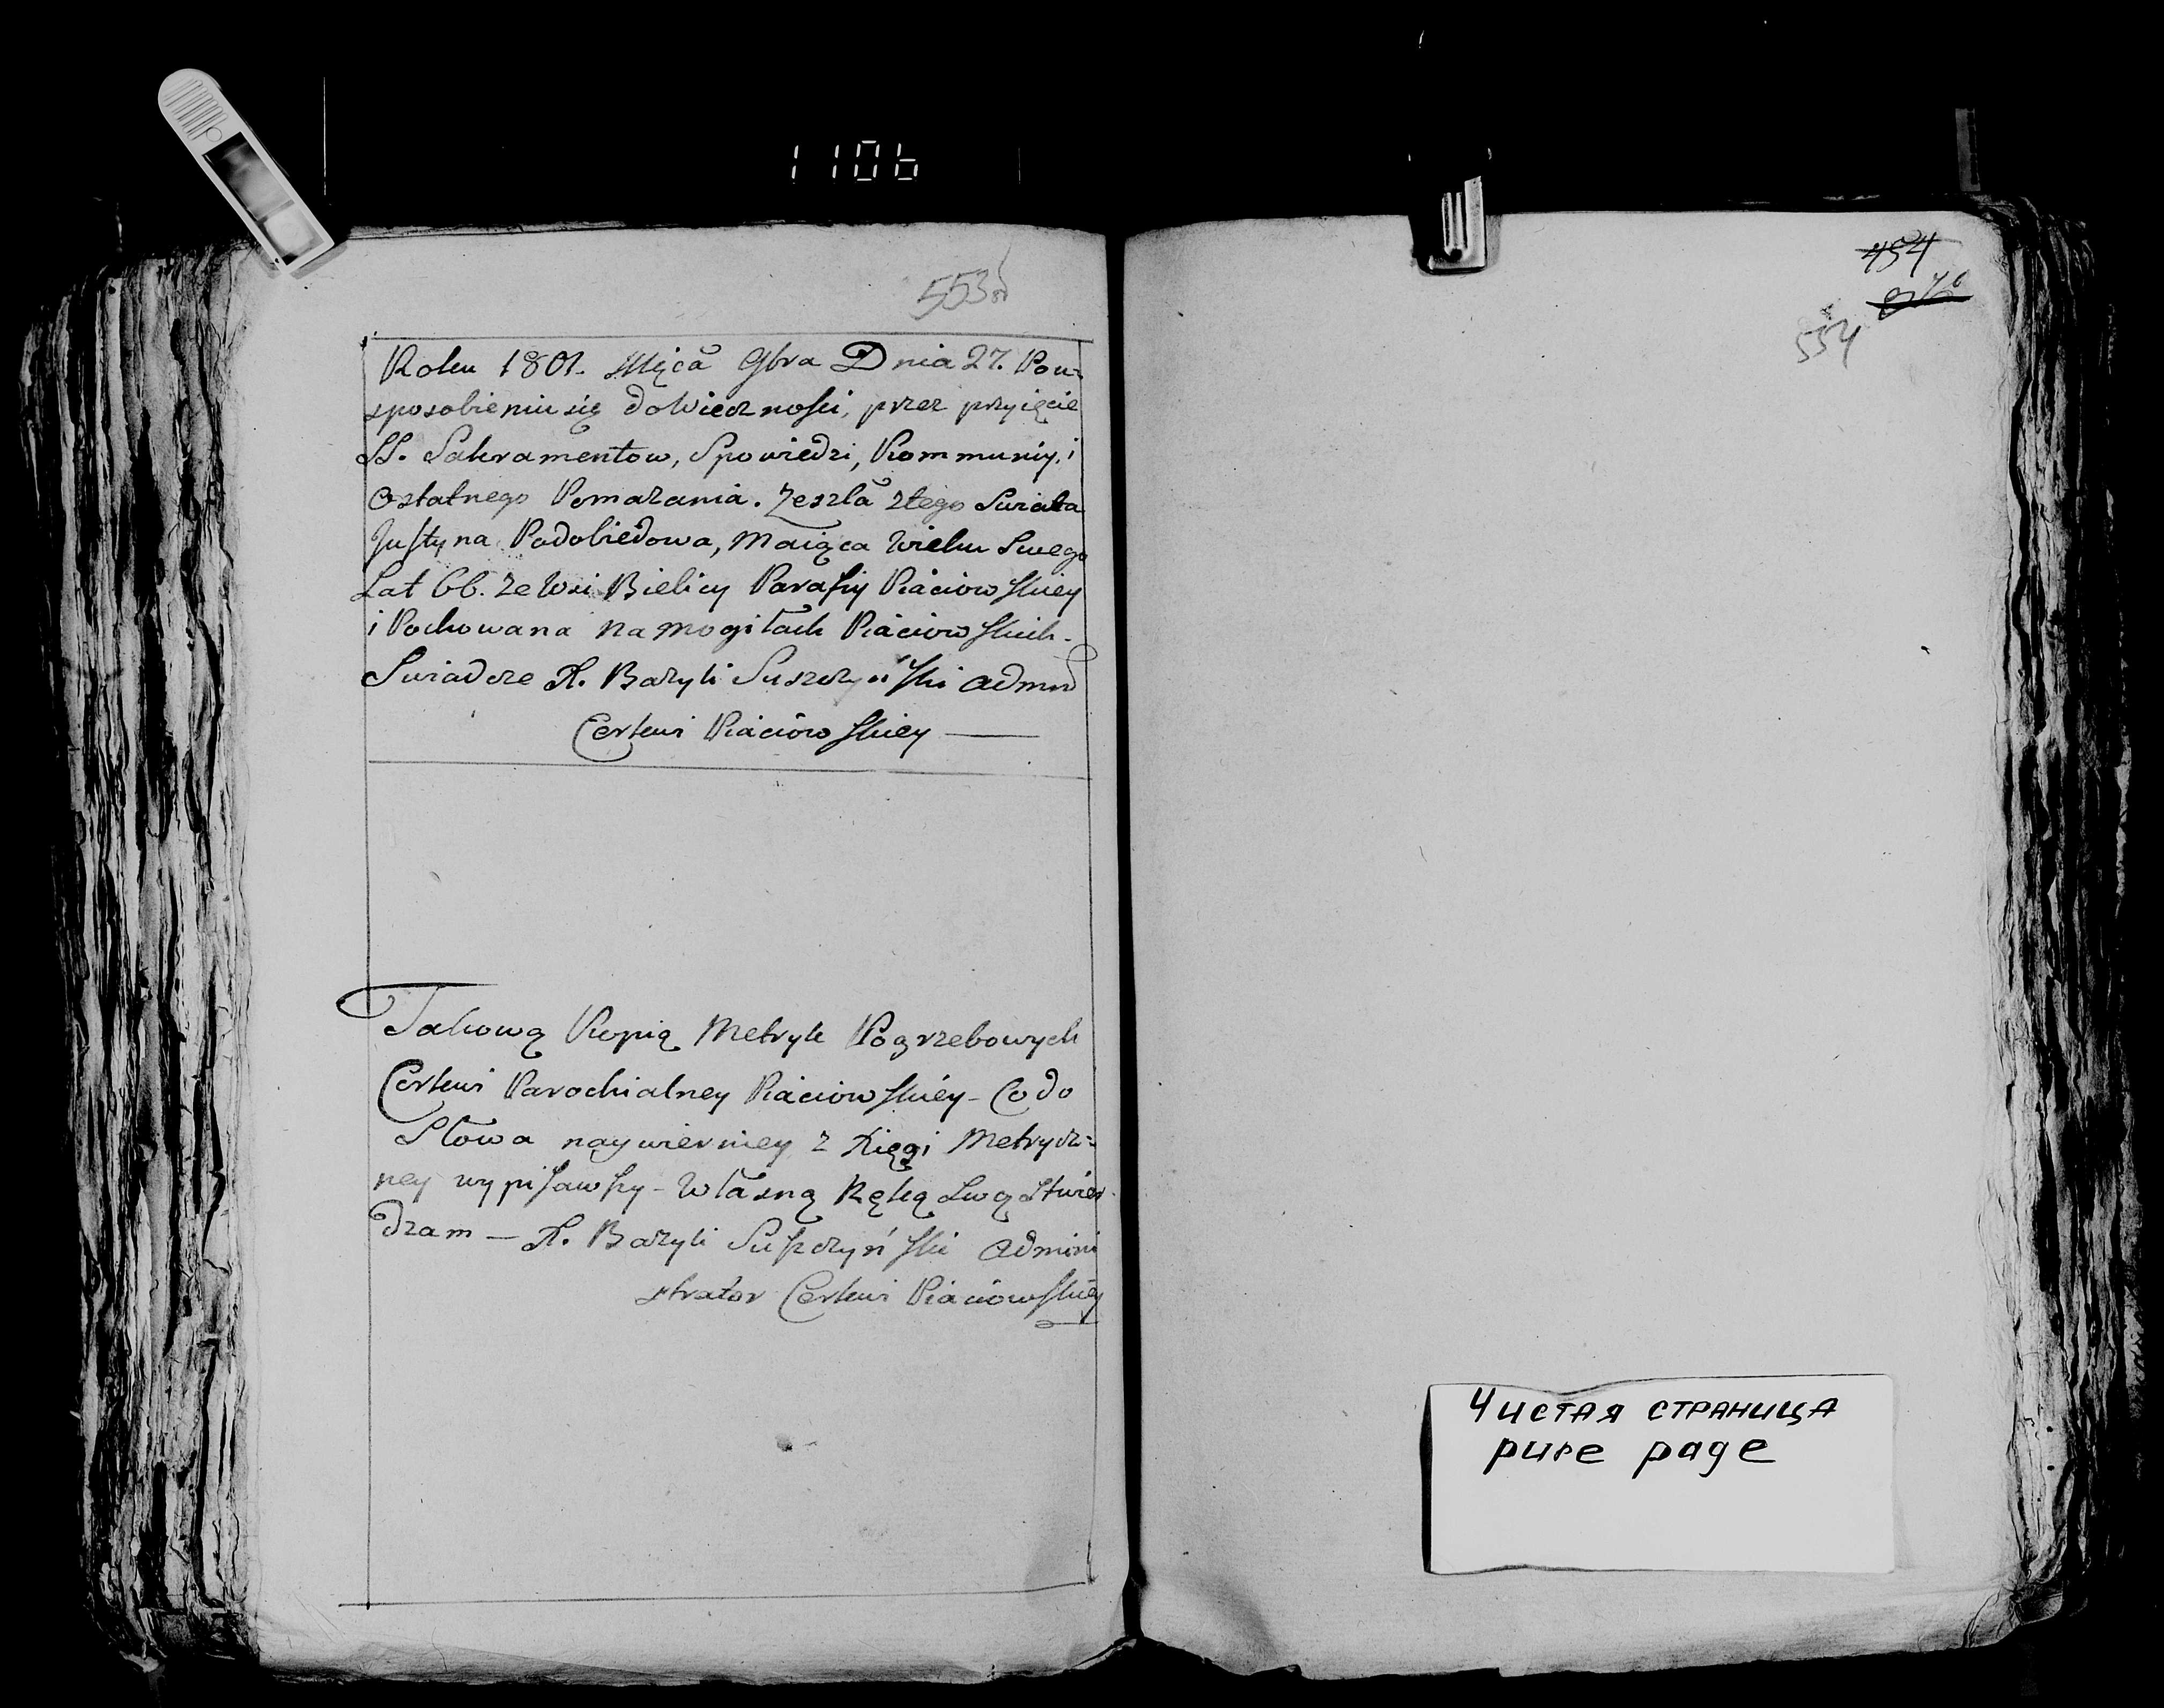 1106
553об
Roku 1801. Mięca 9bra Dnia 27. Pou-
sposobieniu się do Wiecznosci, przez przyięcie
SS. Sakramentow, Spowiedzi, Kommuniy, i
Ostatnego Pomazania. Zeszła z tego Swiata
Justyna Podobiedowa, Maiąca Wieku Swego
Lat 66. Ze Wsi Bielicy Parafiy Piaciowskiey
i Pochowana na mogiłach Piaciowskich.
Swiadcze X. Bazyli Suszczyński Admin
Cerkwi Piaciowskiey —
Takową Kopią Metryk Pogrzebowych
Cerkwi Parochialney Piaciowskiey - Co do
Słowa naywierniey z Xięgi Metrycz=
ney wypisawszy - Własną Ręką Swą Stwier-
dzam — X. Bazyli Suszczyński Admini
strator Cerkwi Piaciowskiey
454
554
Чистая страница
pure page